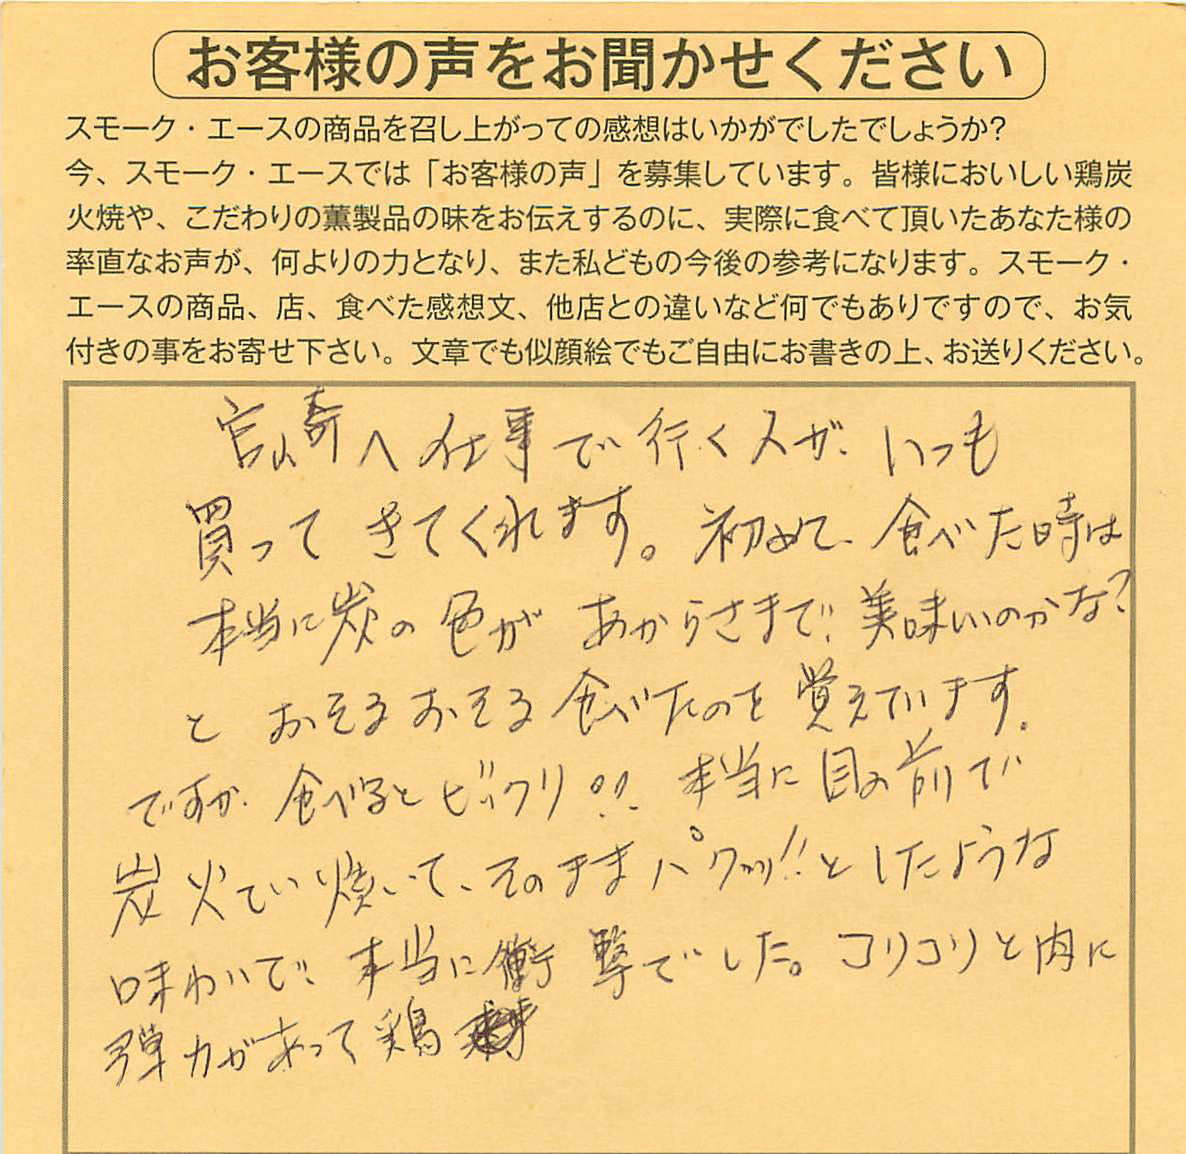 お客様の声をお聞かせください
スモーク・エースの商品を召し上がっての感想はいかがでしたでしょうか?
今、スモーク・エースでは「お客様の声」を募集しています。皆様においしい鶏炭
火焼や、こだわりの薫製品の味をお伝えするのに、実際に食べて頂いたあなた様の
率直なお声が、何よりの力となり、また私どもの今後の参考になります。スモーク・
エースの商品、店、食べた感想文、他店との違いなど何でもありですので、お気
付きの事をお寄せ下さい。文章でも似顔絵でもご自由にお書きの上、お送りください。
宮崎へ仕事で行く人が、いつも
買ってきてくれます。初めて、食べた時は
本当に炭の色があからさまで、美味いのかな?
とおそるおそる食べたのを覚えています。
ですが、食べるとビックリ!! 本当に目の前で
炭火で焼いて、そのままパクッ!!としたような
味わいで、本当に衝撃でした。コリコリと肉に
弾力があって鶏